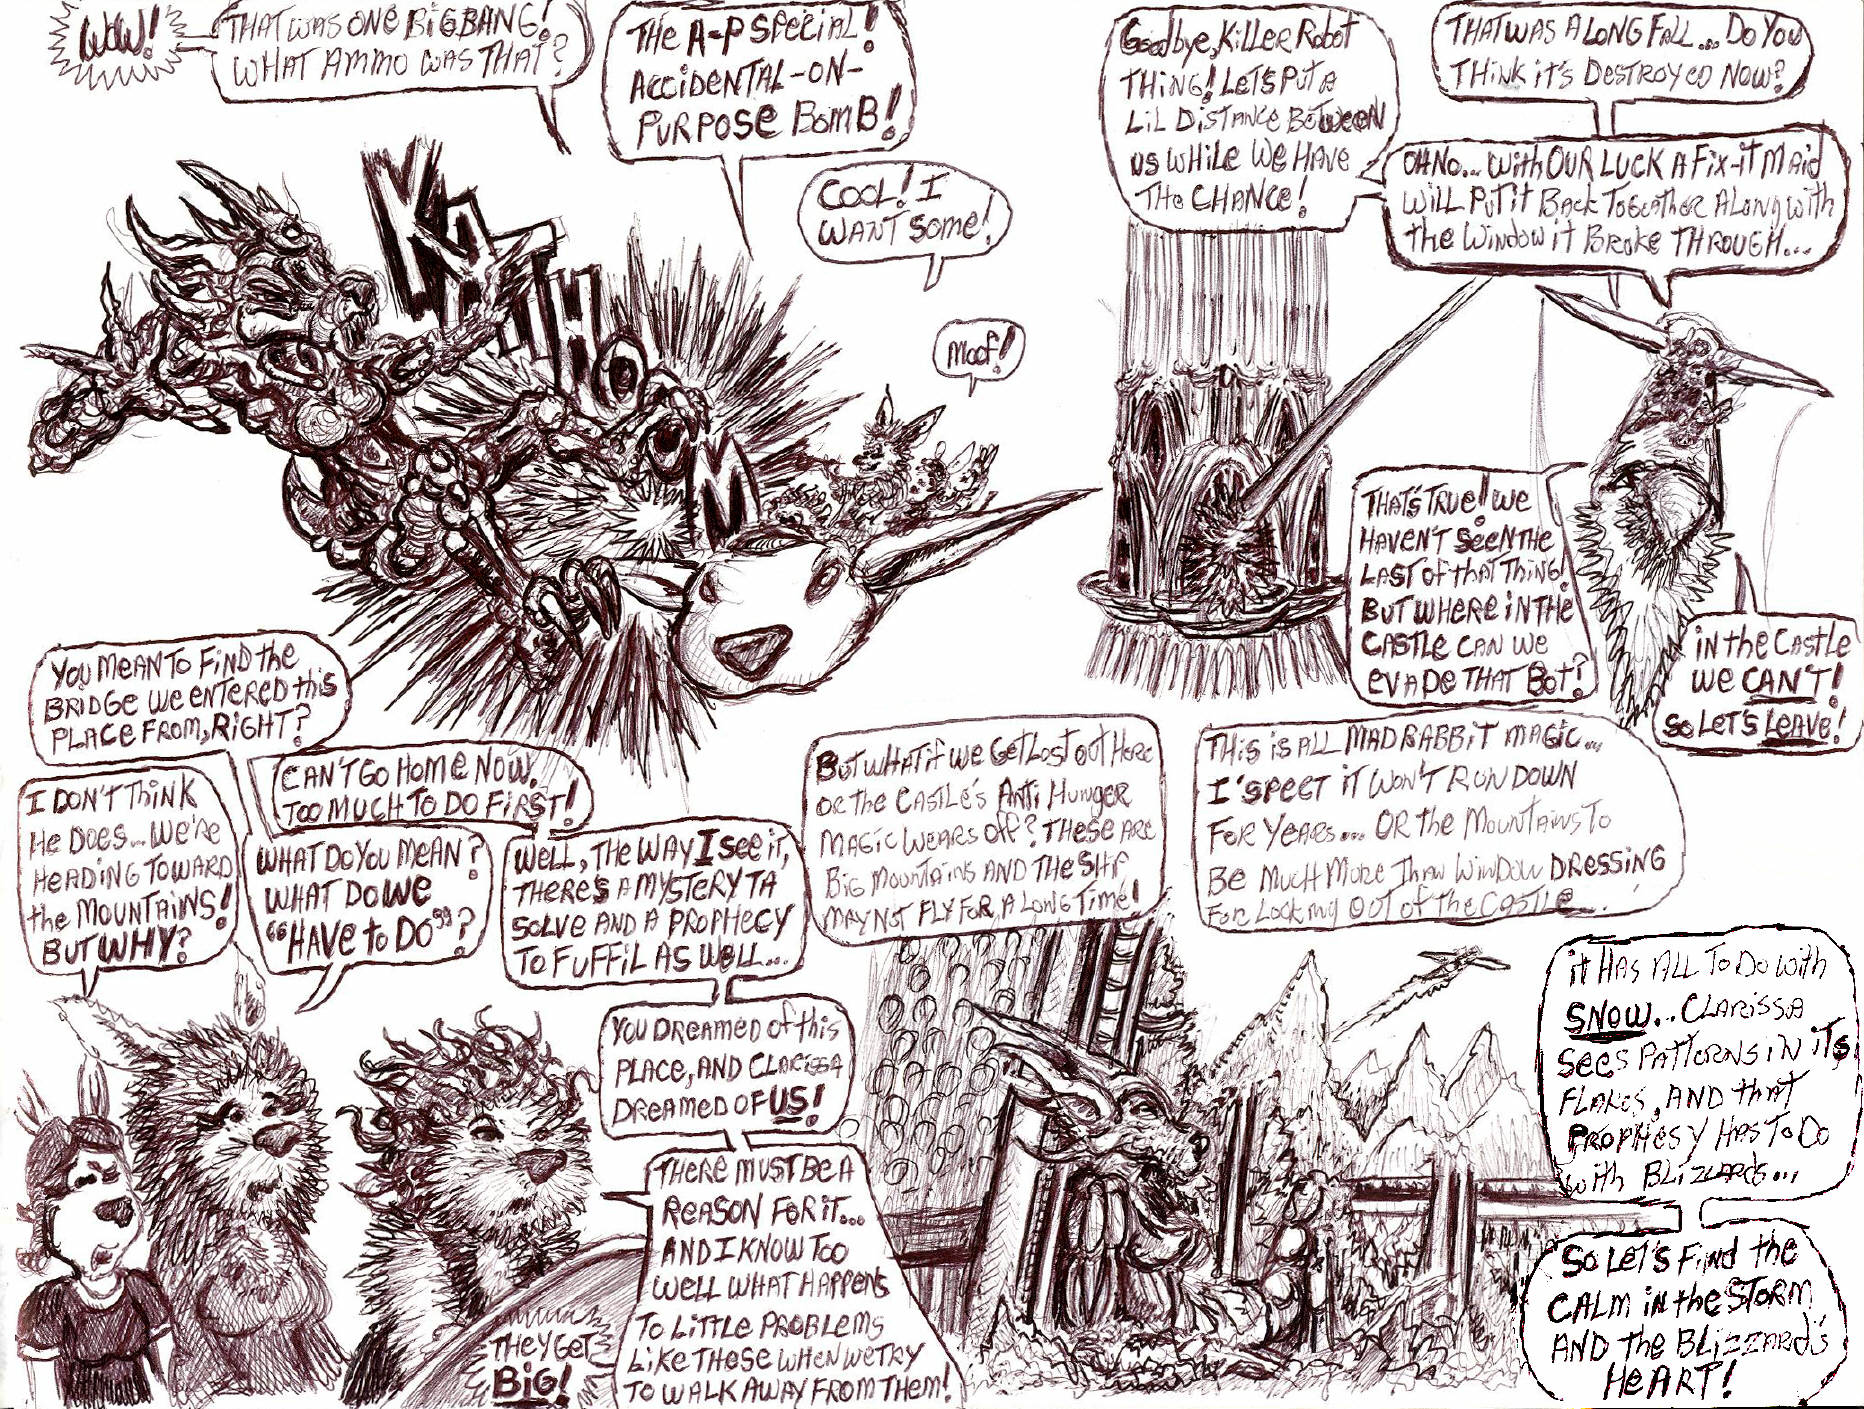 WOW!
THAT WAS ONE BIG BANG!
WHAT AMMO WAS THAT?
THE A-P SPECIAL!
ACCIDENTAL-ON-
PURPOSE BOMB!
COOL! I
WANT SOME!
KATHOOM
Moof!
Goodbye, Killer Robot
THING! LET'S PUT A
LIL DISTANCE BETWEEN
US WHILE WE HAVE
THE CHANCE!
THAT WAS A LONG FALL... DO YOU
THINK IT'S DESTROYED NOW?
OH NO... WITH OUR LUCK A FIX-IT MAID
WILL PUT IT BACK TOGEATHER ALONG WITH
THE WINDOW IT BROKE THROUGH...
THAT'S TRUE! WE
HAVEN'T SEEN THE
LAST OF THAT THING!
BUT WHERE IN THE
CASTLE CAN WE
EVADE THAT BOT?
IN THE CASTLE
WE CAN'T!
SO LET'S LEAVE!
YOU MEAN TO FIND THE
BRIDGE WE ENTERED THIS
PLACE FROM, RIGHT?
I DON'T THINK
HE DOES... WE'RE
HEADING TOWARD
THE MOUNTAINS!
BUT WHY?
CAN'T GO HOME NOW.
TOO MUCH TO DO FIRST!
WHAT DO YOU MEAN?
WHAT DO WE
"HAVE TO DO"?
WELL, THE WAY I SEE IT,
THERE'S A MYSTERY TA
SOLVE AND A PROPHECY
TO FUFFIL AS WELL...
YOU DREAMED OF THIS
PLACE, AND CLARISSA
DREAMED OF US!
THERE MUST BE A
REASON FOR IT...
AND I KNOW TOO
WELL WHAT HAPPENS
TO LITTLE PROBLEMS
LIKE THESE WHEN WE TRY
TO WALK AWAY FROM THEM!
THEY GET
BIG!
BUT WHAT IF WE GET LOST OUT HERE
OR THE CASTLE'S ANTI HUNGER
MAGIC WEARS OFF? THESE ARE
BIG MOUNTAINS AND THE SHIP
MAY NOT FLY FOR A LONG TIME!
THIS IS ALL MAD RABBIT MAGIC...
I 'SPECT IT WON'T RUN DOWN
FOR YEARS... OR THE MOUNTAINS TO
BE MUCH MORE THAN WINDOW DRESSING
FOR LOOKING OUT OF THE CASTLE...
IT HAS ALL TO DO WITH
SNOW... CLARISSA
SEES PATTERNS IN ITS
FLAKES, AND THAT
PROPHESY HAS TO DO
WITH BLIZZARDS...
SO LET'S FIND THE
CALM IN THE STORM
AND THE BLIZZARD'S
HEART!